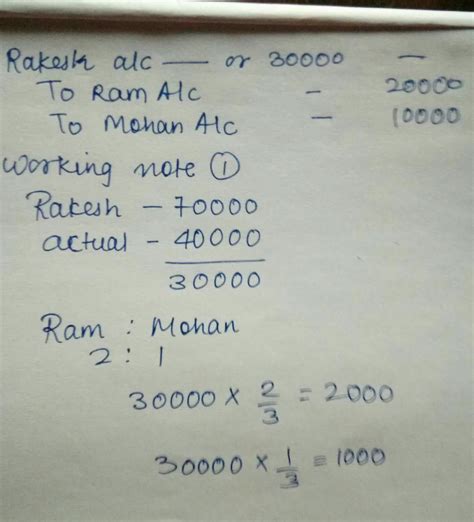 Rakesh a/c — or 30000 —
To Ram A/c - 20000
To Mohan A/c - 10000
Working note ①
Rakesh - 70000
actual - 40000
30000
Ram : Mohan
2 : 1
30000 × 2/3 = 2000
30000 × 1/3 = 1000